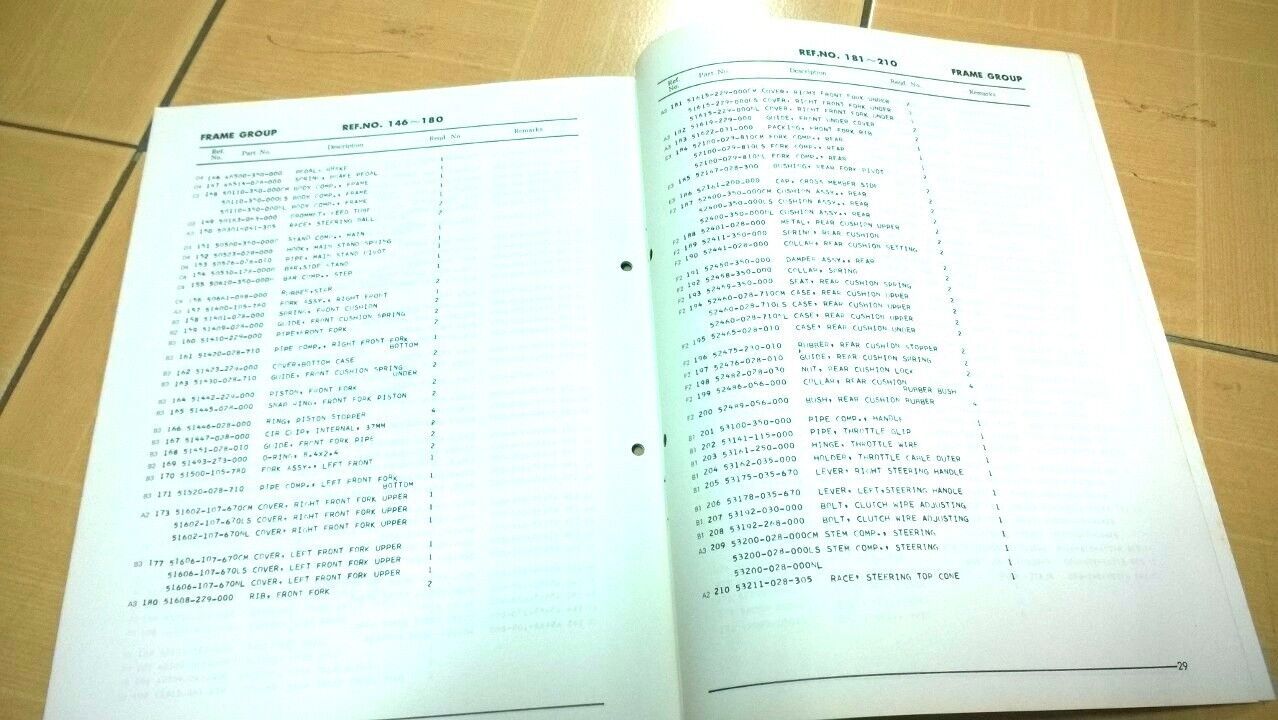 FRAME GROUP REF.NO. 146~180
Ref. No. Part No. Description Reqd. No. Remarks
146 46500-350-000 PEDAL, BRAKE 1
147 46514-028-000 SPRING, BRAKE PEDAL 1
148 50110-350-000CM BODY COMP., FRAME 1
50110-350-000LS BODY COMP., FRAME 1
50110-350-000NL BODY COMP., FRAME 1
149
150 50301-051-305 RACE, STEERING BALL 2
151 50500-350-000 STAND COMP., MAIN 1
152 50523-028-000 HOOK, MAIN STAND SPRING 1
153 50526-028-010 PIPE, MAIN STAND PIVOT 1
154 50530-128-000 BAR, SIDE STAND 1
155 50610-350-000 BAR COMP., STEP 1
156 50661-098-000 RUBBER, STEP 2
157 51400-105-780 FORK ASSY., RIGHT FRONT 1
158 51401-028-000 SPRING, FRONT CUSHION 2
159 51409-028-000 GUIDE, FRONT CUSHION SPRING 2
B3 160 51410-229-000 PIPE, FRONT FORK 2
B3 161 51420-028-710 PIPE COMP., RIGHT FRONT FORK BOTTOM 1
B3 162 51423-229-000 COVER, BOTTOM CASE 2
B3 163 51430-028-710 GUIDE, FRONT CUSHION SPRING UNDER 2
B3 164 51442-229-000 PISTON, FRONT FORK 2
B3 165 51445-028-000 SNAP RING, FRONT FORK PISTON 2
B3 166 51446-028-000 RING, PISTON STOPPER 4
B3 167 51447-028-000 CIR CLIP, INTERNAL, 37MM 2
B3 168 51451-028-010 GUIDE, FRONT FORK PIPE 2
B3 169 51493-273-000 O-RING, 8.4X2.4 2
B3 170 51500-105-780 FORK ASSY., LEFT FRONT 1
B3 171 51520-028-710 PIPE COMP., LEFT FRONT FORK BOTTOM 1
A2 173 51602-107-670CM COVER, RIGHT FRONT FORK UPPER 1
51602-107-670LS COVER, RIGHT FRONT FORK UPPER 1
51602-107-670NL COVER, RIGHT FRONT FORK UPPER 1
B3 177 51606-107-670CM COVER, LEFT FRONT FORK UPPER 1
51606-107-670LS COVER, LEFT FRONT FORK UPPER 1
51606-107-670NL COVER, LEFT FRONT FORK UPPER 1
A3 180 51608-229-000 RIB, FRONT FORK 2
REF.NO. 181~210 FRAME GROUP
Ref. No. Part No. Description Reqd. No. Remarks
A3 181 51615-229-000CM COVER, RIGHT FRONT FORK UNDER 2
51615-229-000LS COVER, RIGHT FRONT FORK UNDER 2
51615-229-000NL COVER, RIGHT FRONT FORK UNDER 2
A3 182 51619-229-000 GUIDE, FRONT UNDER COVER 2
A3 183 51622-031-000 PACKING, FRONT FORK RIB 2
E3 184 52100-029-810CM FORK COMP., REAR 1
52100-029-810LS FORK COMP., REAR 1
52100-029-810NL FORK COMP., REAR 1
E3 185 52107-028-300 BUSHING, REAR FORK PIVOT 2
E3 186 52161-200-000 CAP, CROSS MEMBER SIDE 2
F2 187 52400-350-000CM CUSHION ASSY., REAR 2
52400-350-000LS CUSHION ASSY., REAR 2
52400-350-000NL CUSHION ASSY., REAR 2
F2 188 52401-028-000 METAL, REAR CUSHION UPPER 2
F2 189 52411-350-000 SPRING, REAR CUSHION 2
F2 190 52441-028-000 COLLAR, REAR CUSHION SETTING 2
F2 191 52450-350-000 DAMPER ASSY., REAR 2
F2 192 52458-350-000 COLLAR, SPRING 2
F2 193 52459-350-000 SEAT, REAR CUSHION SPRING 2
F2 194 52460-028-710CM CASE, REAR CUSHION UPPER 2
52460-028-710LS CASE, REAR CUSHION UPPER 2
52460-028-710NL CASE, REAR CUSHION UPPER 2
F2 195 52465-028-010 CASE, REAR CUSHION UNDER 2
F2 196 52475-230-010 RUBBER, REAR CUSHION STOPPER 2
F2 197 52476-028-010 GUIDE, REAR CUSHION SPRING 2
F2 198 52482-028-030 NUT, REAR CUSHION LOCK 2
F2 199 52486-056-000 COLLAR, REAR CUSHION RUBBER BUSH 4
F2 200 52489-056-000 BUSH, REAR CUSHION RUBBER 4
B1 201 53100-350-000 PIPE COMP., HANDLE 1
B1 202 53141-115-000 PIPE, THROTTLE GLIP 1
B1 203 53161-250-000 HINGE, THROTTLE WIRE 1
B1 204 53162-035-000 HOLDER, THROTTLE CABLE OUTER 1
B1 205 53175-035-670 LEVER, RIGHT STEERING HANDLE 1
B1 206 53178-035-670 LEVER, LEFT, STEERING HANDLE 1
B1 207 53192-030-000 BOLT, CLUTCH WIRE ADJUSTING 1
B1 208 53192-268-000 BOLT, CLUTCH WIRE ADJUSTING 1
A3 209 53200-028-000CM STEM COMP., STEERING 1
53200-028-000LS STEM COMP., STEERING 1
53200-028-000NL 1
A2 210 53211-028-305 RACE, STEERING TOP CONE 1
29